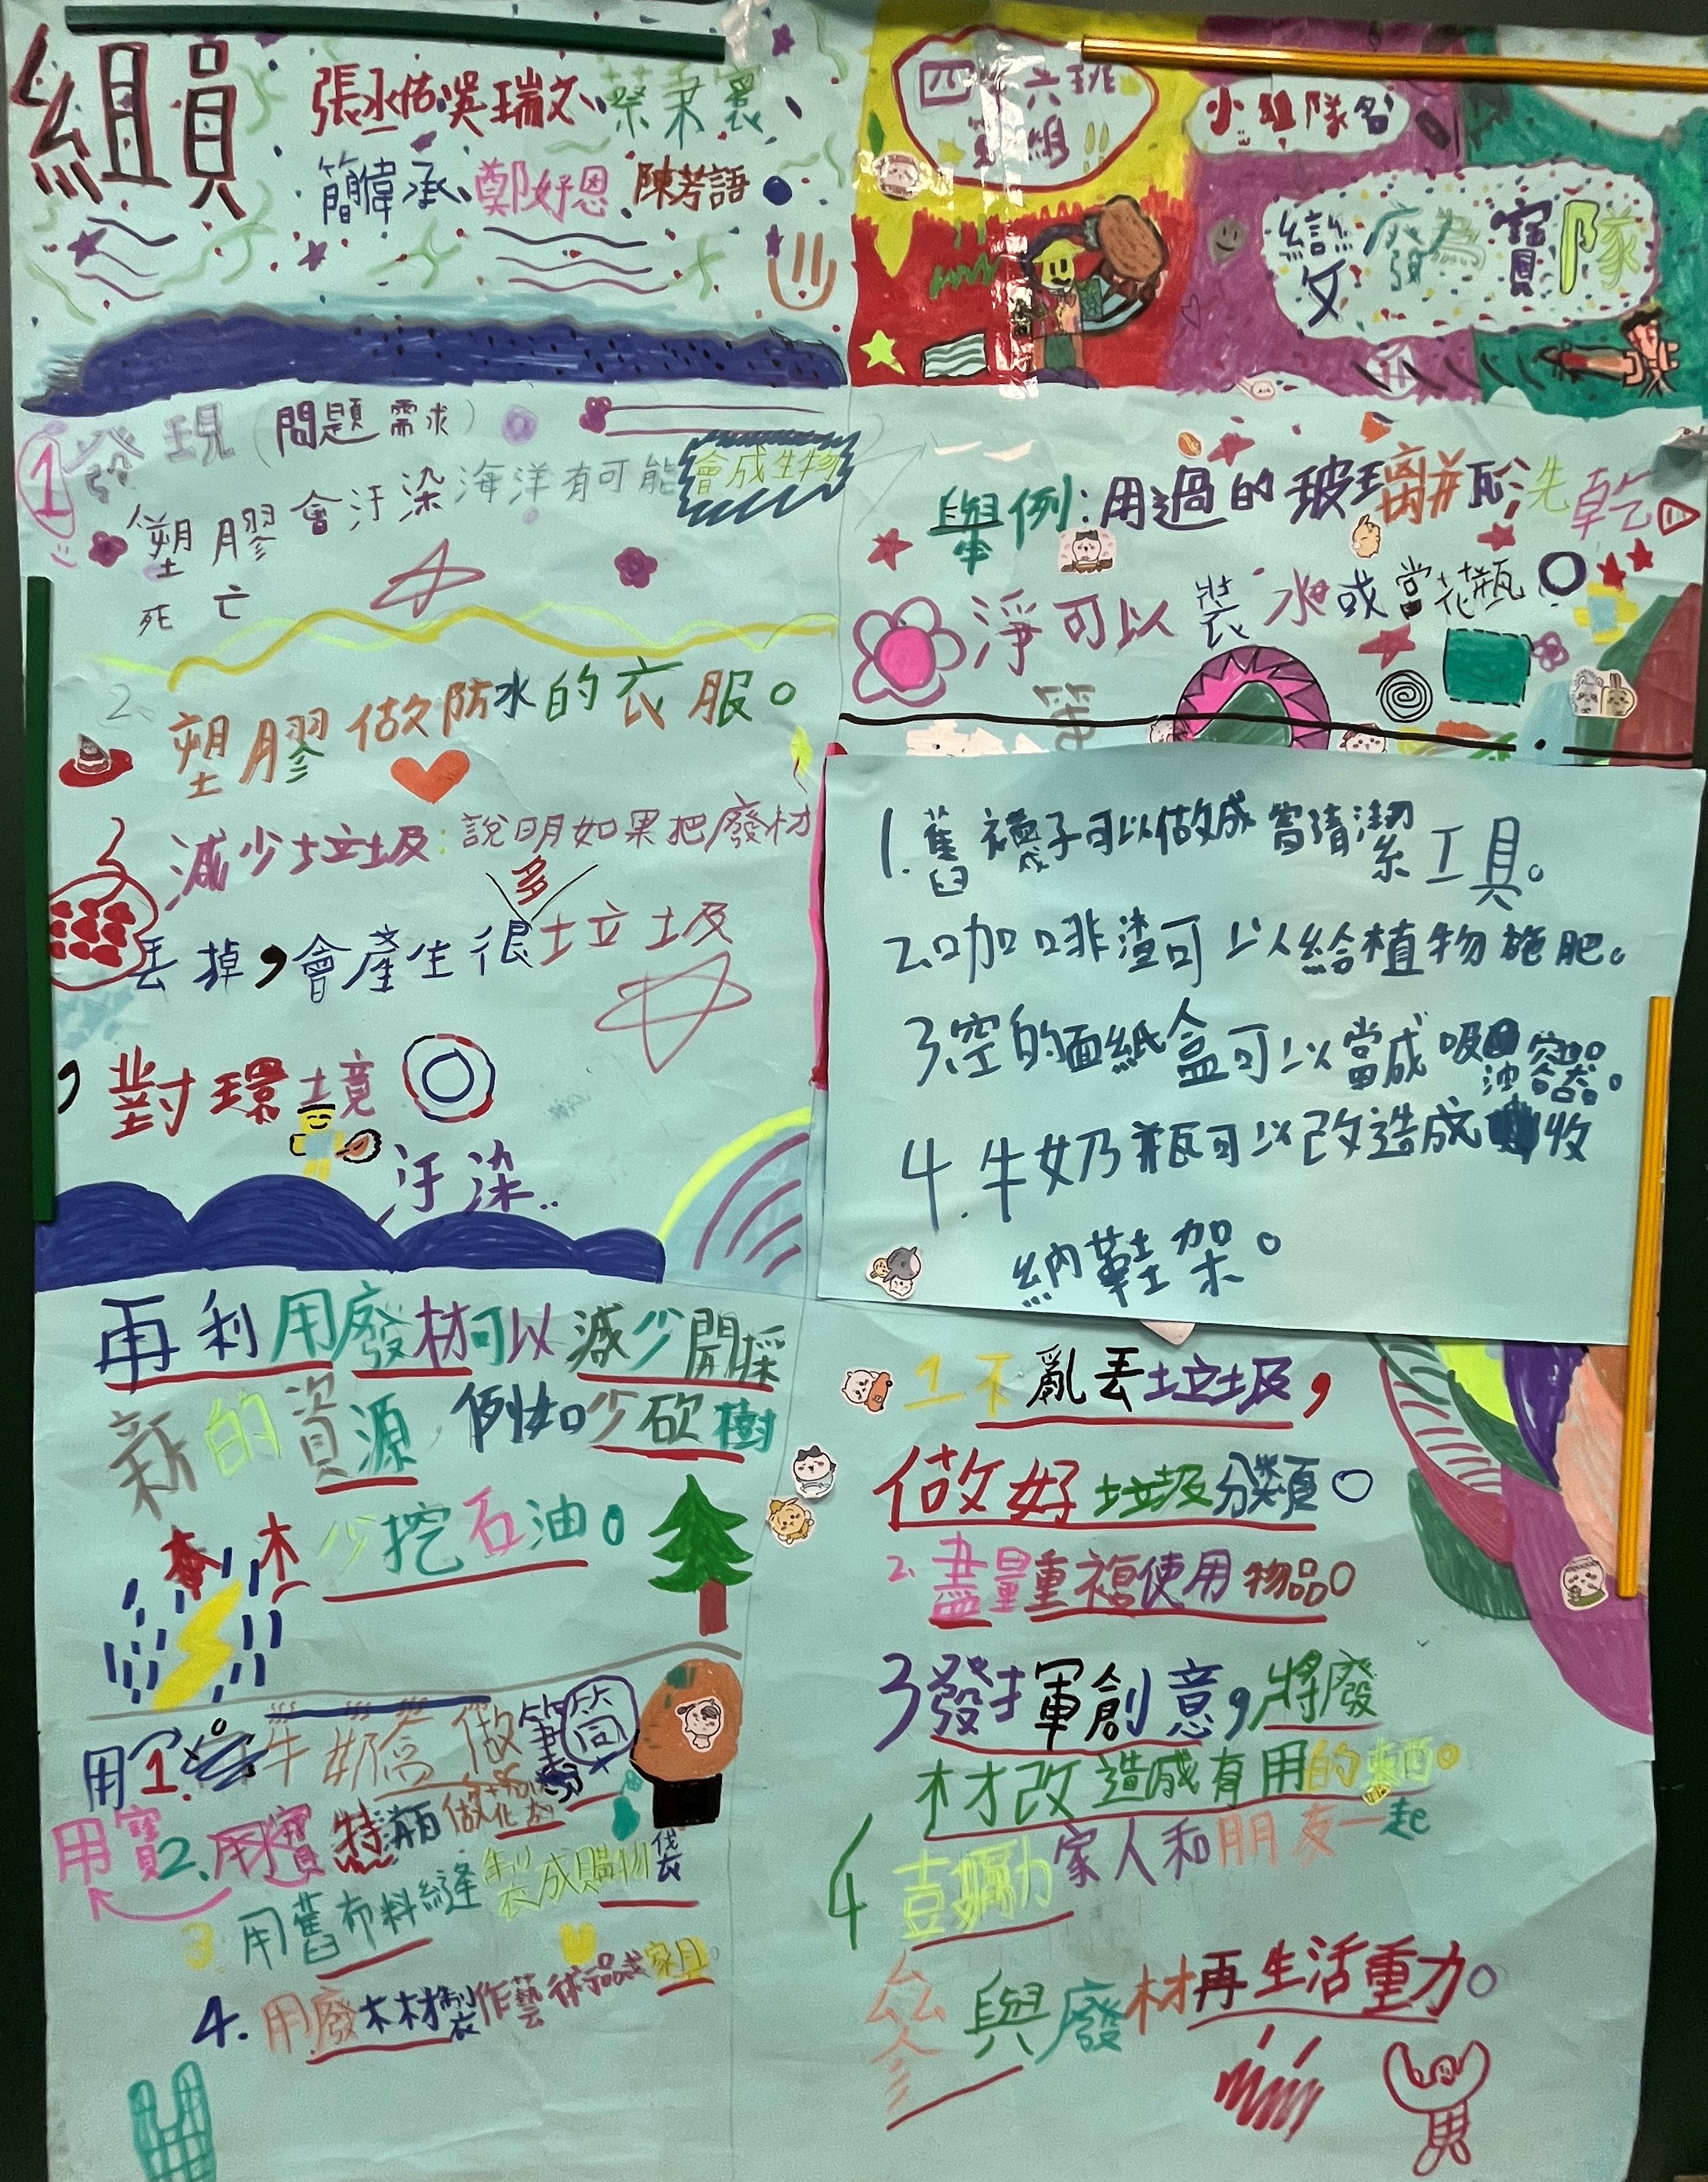 組員
張丞佑、吳瑞文、蔡秉寰
簡偉承、鄭妤恩、陳芳語
四年六班
第組
小組隊名
變廢為寶隊
1 發現(問題需求)
塑膠會汙染海洋有可能會成生物
死亡
2、塑膠做防水的衣服。
減少垃圾:說明如果把廢材
丟掉,會產生很多垃圾
,對環境
汙染..
再利用廢材可以減少開採
新的資源,例如少砍樹
少挖石油。
用1.牛奶盒做筆筒
用寶2.用寶特瓶做花盆
3 用舊布料縫製成購物袋
4.用廢木材製作藝術品或家具。
舉例:用過的玻璃瓶洗乾
淨可以裝水或當花瓶。
1.舊襪子可以做成窗隙潔工具。
2.咖啡渣可以給植物施肥。
3.空的面紙盒可以當成吸油容器。
4.牛奶瓶可以改造成收
納鞋架。
1 不亂丟垃圾,
做好垃圾分類。
2.盡量重複使用物品。
3發揮創意,將廢
材改造成有用的東西。
4 鼓勵家人和朋友一起
參與廢材再生活動。